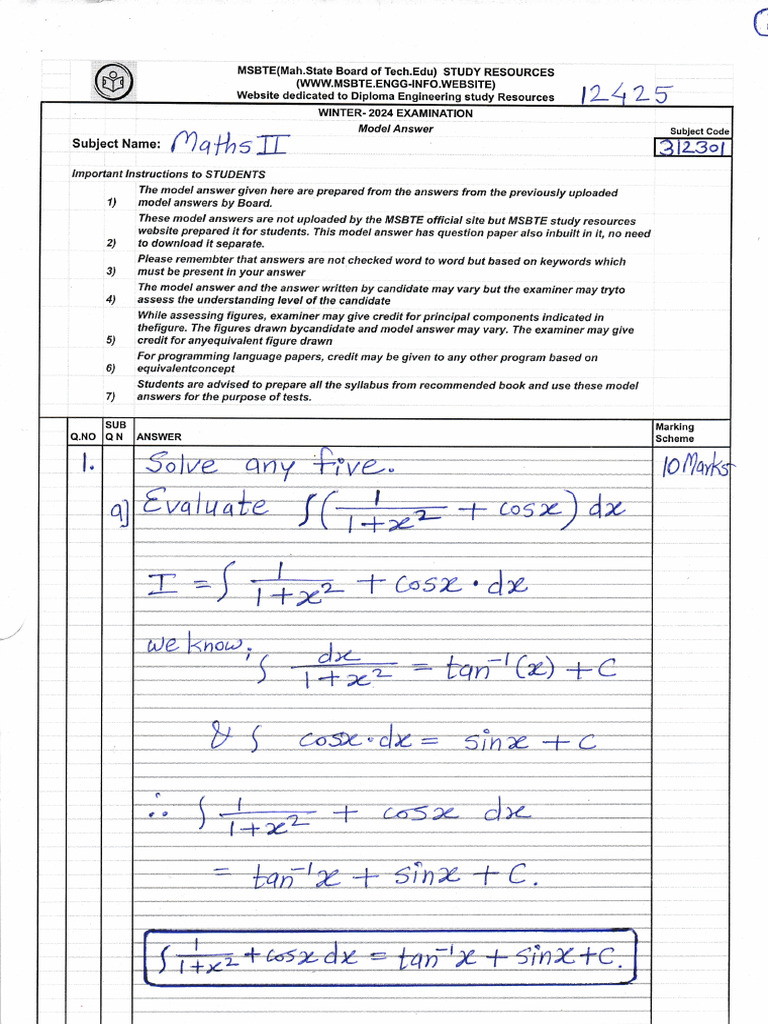 MSBTE(Mah.State Board of Tech.Edu) STUDY RESOURCES
(WWW.MSBTE.ENGG-INFO.WEBSITE)
Website dedicated to Diploma Engineering study Resources
12425
WINTER- 2024 EXAMINATION
Model Answer
Subject Name: Maths II
Subject Code
312301
Important Instructions to STUDENTS
1) The model answer given here are prepared from the answers from the previously uploaded
model answers by Board.
These model answers are not uploaded by the MSBTE official site but MSBTE study resources
website prepared it for students. This model answer has question paper also inbuilt in it, no need
2) to download it separate.
Please remembter that answers are not checked word to word but based on keywords which
3) must be present in your answer
The model answer and the answer written by candidate may vary but the examiner may tryto
4) assess the understanding level of the candidate
While assessing figures, examiner may give credit for principal components indicated in
thefigure. The figures drawn bycandidate and model answer may vary. The examiner may give
5) credit for anyequivalent figure drawn
For programming language papers, credit may be given to any other program based on
6) equivalentconcept
Students are advised to prepare all the syllabus from recommended book and use these model
7) answers for the purpose of tests.
Q.NO SUB Q N ANSWER Marking Scheme
1. Solve any five. 10 Marks
a] Evaluate ∫(1/(1+x²) + cosx) dx
I = ∫ 1/(1+x²) + cosx · dx
we know, ∫ dx/(1+x²) = tan⁻¹(x) + C
& ∫ cosx·dx = sinx + C
∴ ∫ 1/(1+x²) + cosx dx
= tan⁻¹x + sinx + C.
∫ 1/(1+x²) + cosx dx = tan⁻¹x + sinx + C.